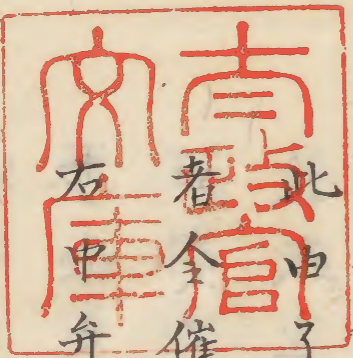 太政官
文庫
此申了
者令催
右中弁